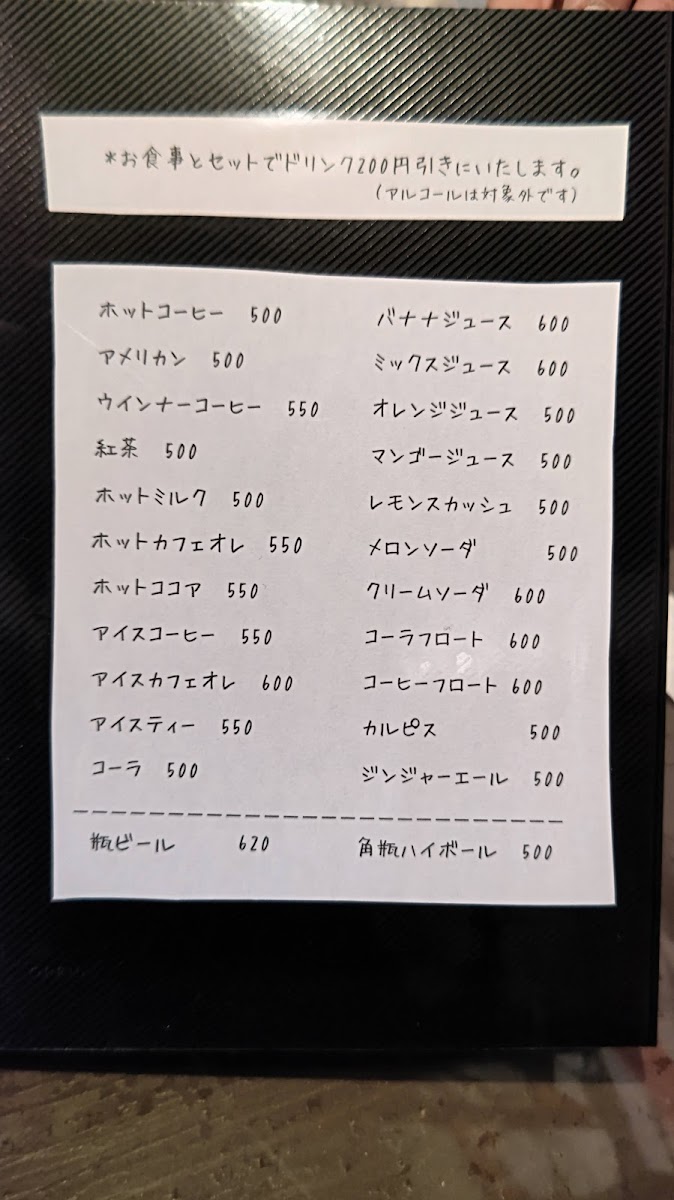 *お食事とセットでドリンク200円引きにいたします。
(アルコールは対象外です)
ホットコーヒー 500
アメリカン 500
ウインナーコーヒー 550
紅茶 500
ホットミルク 500
ホットカフェオレ 550
ホットココア 550
アイスコーヒー 550
アイスカフェオレ 600
アイスティー 550
コーラ 500
バナナジュース 600
ミックスジュース 600
オレンジジュース 500
マンゴージュース 500
レモンスカッシュ 500
メロンソーダ 500
クリームソーダ 600
コーラフロート 600
コーヒーフロート 600
カルピス 500
ジンジャーエール 500
瓶ビール 620
角瓶ハイボール 500